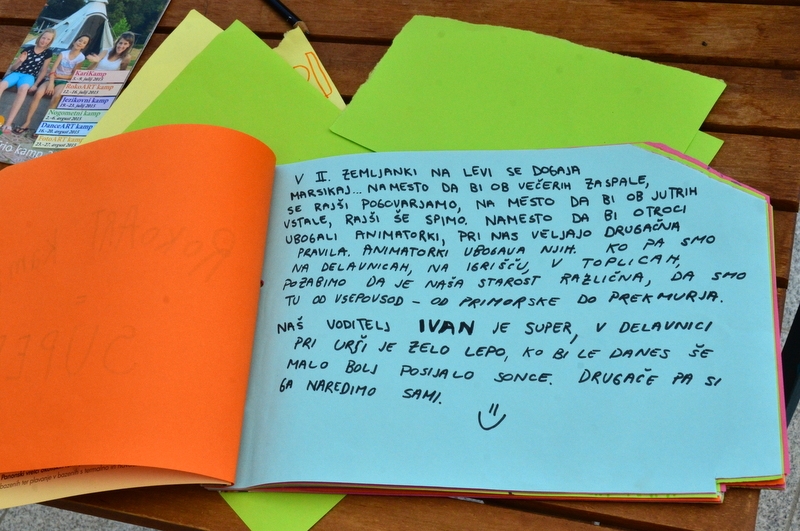 KarsKamp
5.-9. julij 2015
RokoART kamp
12.-16. julij 2015
Jezikovni kamp
19.-23. julij 2015
Nogometni kamp
2.-6. avgust 2015
DanceART kamp
16.-20. avgust 2015
FotoART kamp
23.-27. avgust 2015
kamp
V II. ZEMLJANKI NA LEVI SE DOGAJA
MARSIKAJ... NAMESTO DA BI OB VEČERIH ZASPALE,
SE RAJŠI POGOVARJAMO, NA MESTO DA BI OB JUTRIH
VSTALE, RAJŠI ŠE SPIMO. NAMESTO DA BI OTROCI
UBOGALI ANIMATORKI, PRI NAS VELJAJO DRUGAČNA
PRAVILA. ANIMATORKI UBOGAVA NJIH. KO PA SMO
NA DELAVNICAH, NA IGRIŠČU, V TOPLICAH,
POZABIMO DA JE NAŠA STAROST RAZLIČNA, DA SMO
TU OD VSEPOVSOD – OD PRIMORSKE DO PREKMURJA.
NAŠ VODITELJ IVAN JE SUPER, V DELAVNICI
PRI URŠI JE ZELO LEPO, KO BI LE DANES ŠE
MALO BOLJ POSIJALO SONCE. DRUGAČE PA SI
GA NAREDIMO SAMI.